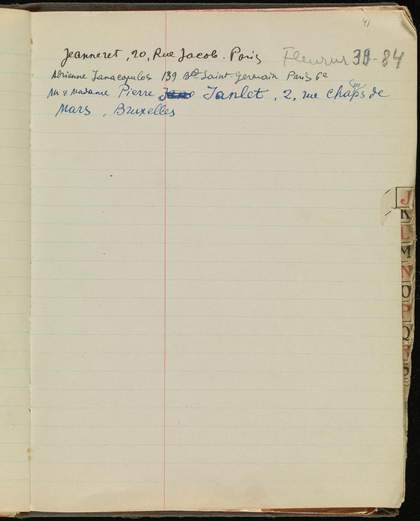 41
Jeanneret, 20, Rue Jacob. Paris Fleurus 39-84
Adrienne Janacopulos 139 Bd Saint Germain Paris 6e
Mr & Madame Pierre Janlet, 2, rue Champs de
Mars, Bruxelles
J
K
L
M
N
O
P
Q
R
S